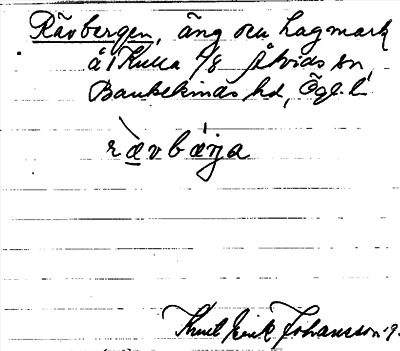 Rävbergen, äng och hagmark
å Kulla 1/8 Åtvids sn,
Bankekinds hd, Ögl. l.
rävbärja
Knut Erik Johansson